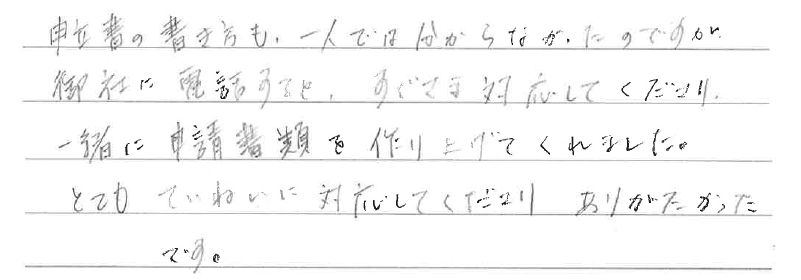 申立書の書き方も、一人では分からなかったのですが、
御社に電話すると、すぐさま対応してくださり、
一緒に申請書類を作り上げてくれました。
とても ていねいに 対応してくださり ありがたかった
です。